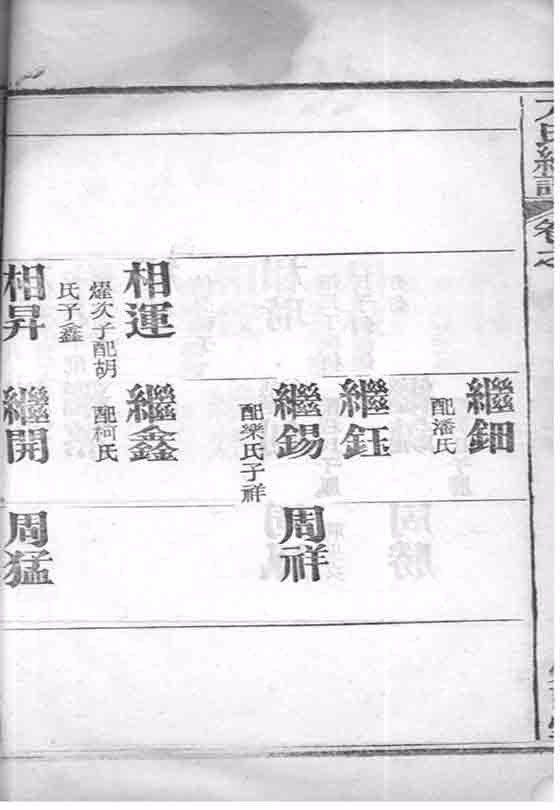 繼鈿
配潘氏
繼鈺
繼錫
配欒氏子祥
周祥
相運
燿次子配胡
氏子鑫
繼鑫
配柯氏
相昇
繼開
周猛